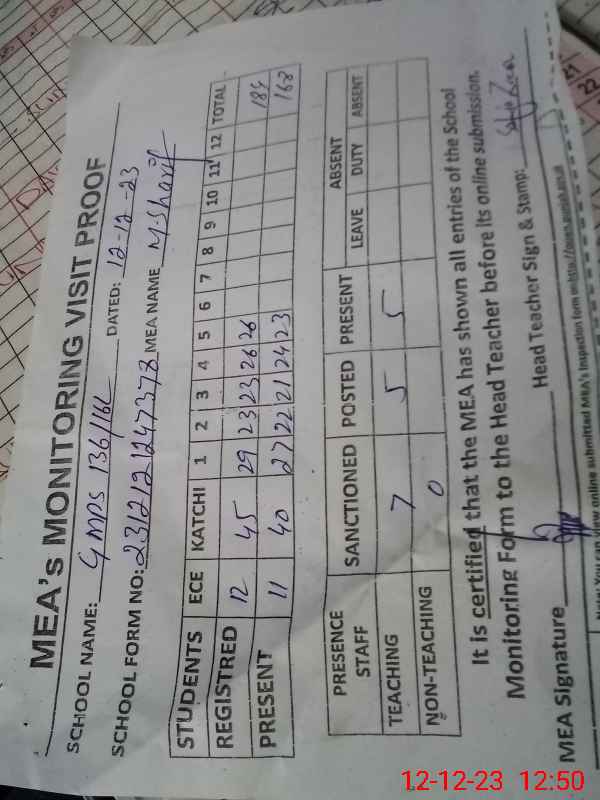 MEA's MONITORING VISIT PROOF
SCHOOL NAME: GMPS 136/16L DATED: 12-12-23
SCHOOL FORM NO: 231212124 7378 MEA NAME M Sharif
STUDENTS ECE KATCHI 1 2 3 4 5 6 7 8 9 10 11 12 TOTAL
REGISTRED 12 45 29 23 23 26 26 184
PRESENT 11 40 27 22 21 24 23 168
PRESENCE STAFF SANCTIONED POSTED PRESENT ABSENT
LEAVE DUTY ABSENT
TEACHING 7 5 5
NON-TEACHING 0
It is certified that the MEA has shown all entries of the School
Monitoring Form to the Head Teacher before its online submission.
MEA Signature Head Teacher Sign & Stamp:
Note: You can view online submitted MEA's Inspection form on
21
22
12-12-23 12:50